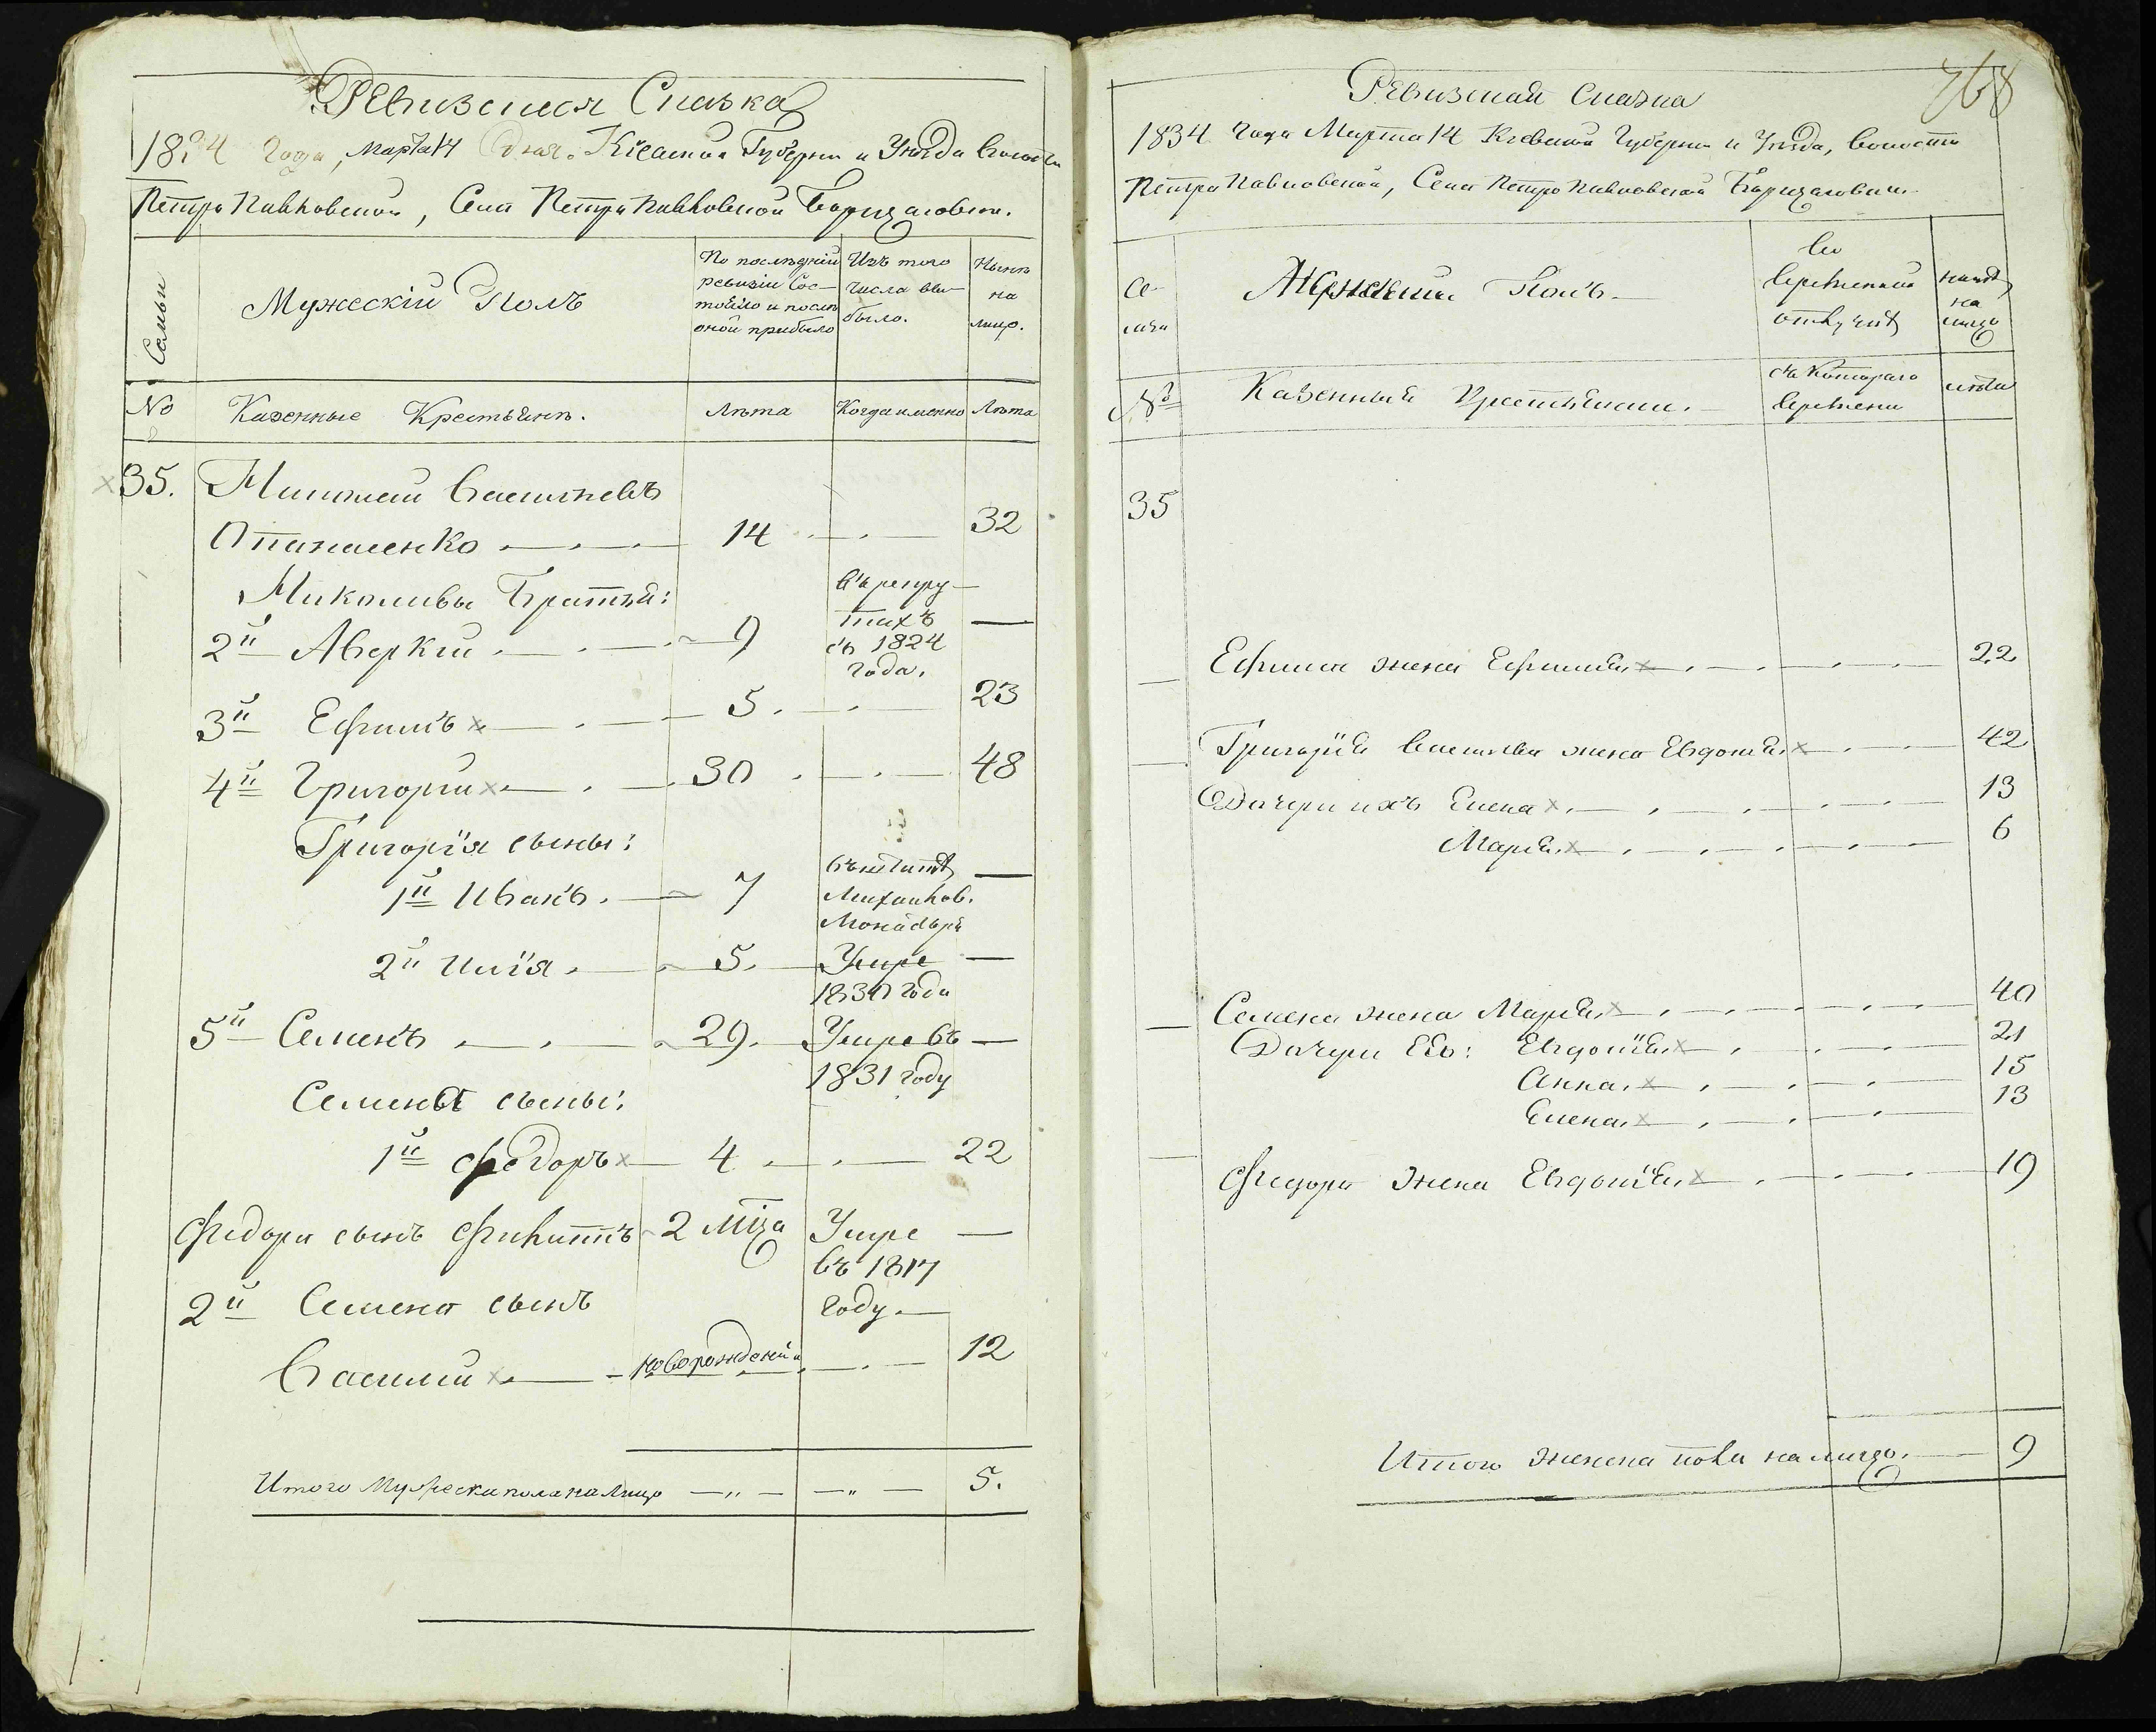 Ревизская Сказка
1834 года, Марта 14 дня. Кіевской Губерніи и Уѣзда Волости
Петро Павловской, Села Петро Павловской Борщаговки.
Семьи
Мужескій Полъ
По послѣдній ревизіи Сос-
тояло и послѣ оной прибыло
Изъ того числа вы-
было.
Нынѣ на лицо.
№
Казенные Крестьянѣ.
Лѣта
Когда именно
Лѣта
35. Николай Васильевъ
Опанасенко 14 32
Николаивы Братья:
2й Аверкий 9 въ рекру-
тахъ
съ 1824
года.
3й Ефимъ 5. 23
4й Григорий 30 48
Григорія сыны:
1й Иванъ. 7
Михайлов.
Монастыря
2й Илія. 5. Умре
1830 года
5й Семенъ 29. Умре въ
1831 году
Семена сыны:
1й Федоръ 4 22
Федора сынъ Филиппъ 2 Мца Умре
въ 1817
году.
2й Семена сынъ
Василий новорожденый 12
Итого Мужеска пола на Лицо 5.
768
Ревизская Сказка
1834 Года Марта 14 Кіевской Губерніи и Уѣзда, Волости
Петро Павловской, Села Петро Павловской Борщаговки
Се-
мьи
Женский Полъ
Во
временной
отлучкѣ
нынѣ
на
лицо
№
Казенный Крестьянки.
съ Котораго
времени
лѣта
35
Ефима жена Ефимия 22
Григорий Васильева жена Евдокия 42
Дочери ихъ Елена 13
Мария 6
Семена жена Мария 40
Дочери Его: Евдокия 21
Анна 15
Елена 13
Федора жена Евдокия 19
Итого женска пола на лицо. 9